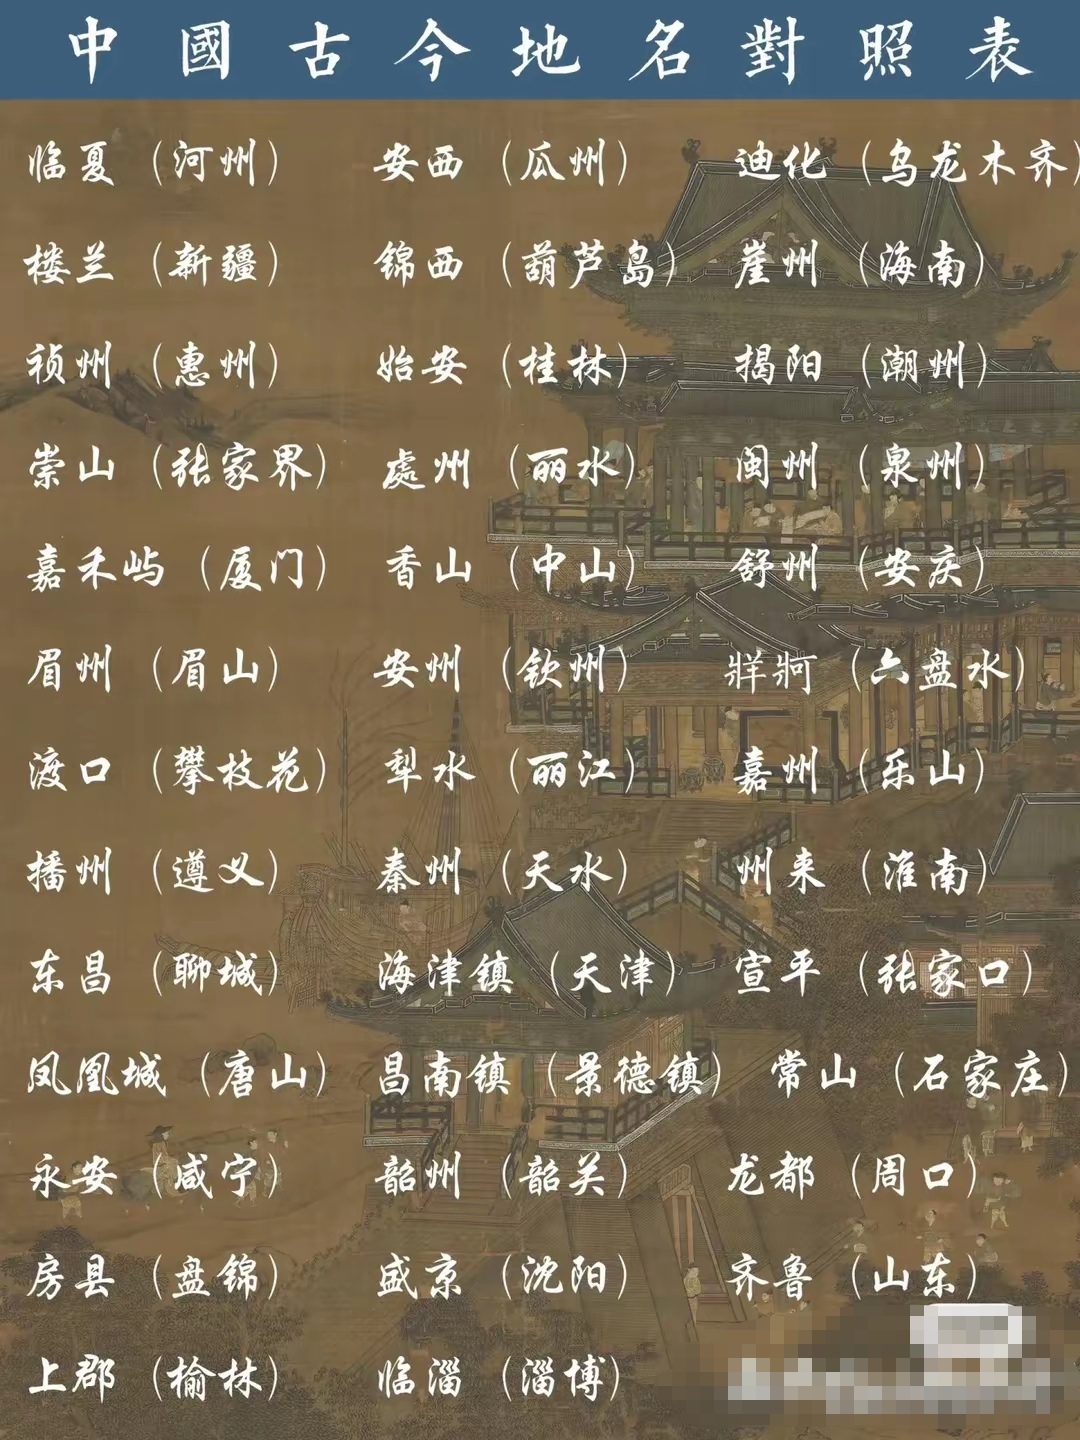 中國古今地名對照表
临夏（河州） 安西（瓜州） 迪化（乌龙木齐）
楼兰（新疆） 锦西（葫芦岛） 崖州（海南）
祯州（惠州） 始安（桂林） 揭阳（潮州）
崇山（张家界） 處州（丽水） 闽州（泉州）
嘉禾屿（厦门） 香山（中山） 舒州（安庆）
眉州（眉山） 安州（钦州） 牂牁（六盘水）
渡口（攀枝花） 犁水（丽江） 嘉州（乐山）
播州（遵义） 秦州（天水） 州来（淮南）
东昌（聊城） 海津镇（天津） 宣平（张家口）
凤凰城（唐山） 昌南镇（景德镇） 常山（石家庄）
永安（咸宁） 韶州（韶关） 龙都（周口）
房县（盘锦） 盛京（沈阳） 齐鲁（山东）
上郡（榆林） 临淄（淄博）